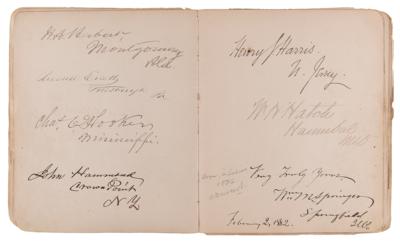 H. A. Herbert,
Montgomery
Ala
Pittsburgh Pa
Chas. E. Hooker,
Mississippi.
John Hammond
Crown Point
N Y
Henry S Harris.
N. Jersey.
W H Hatch
Hannibal
Mo
Very Truly Yours
Wm M Springer
Springfield
Ills.
February 2, 1882.